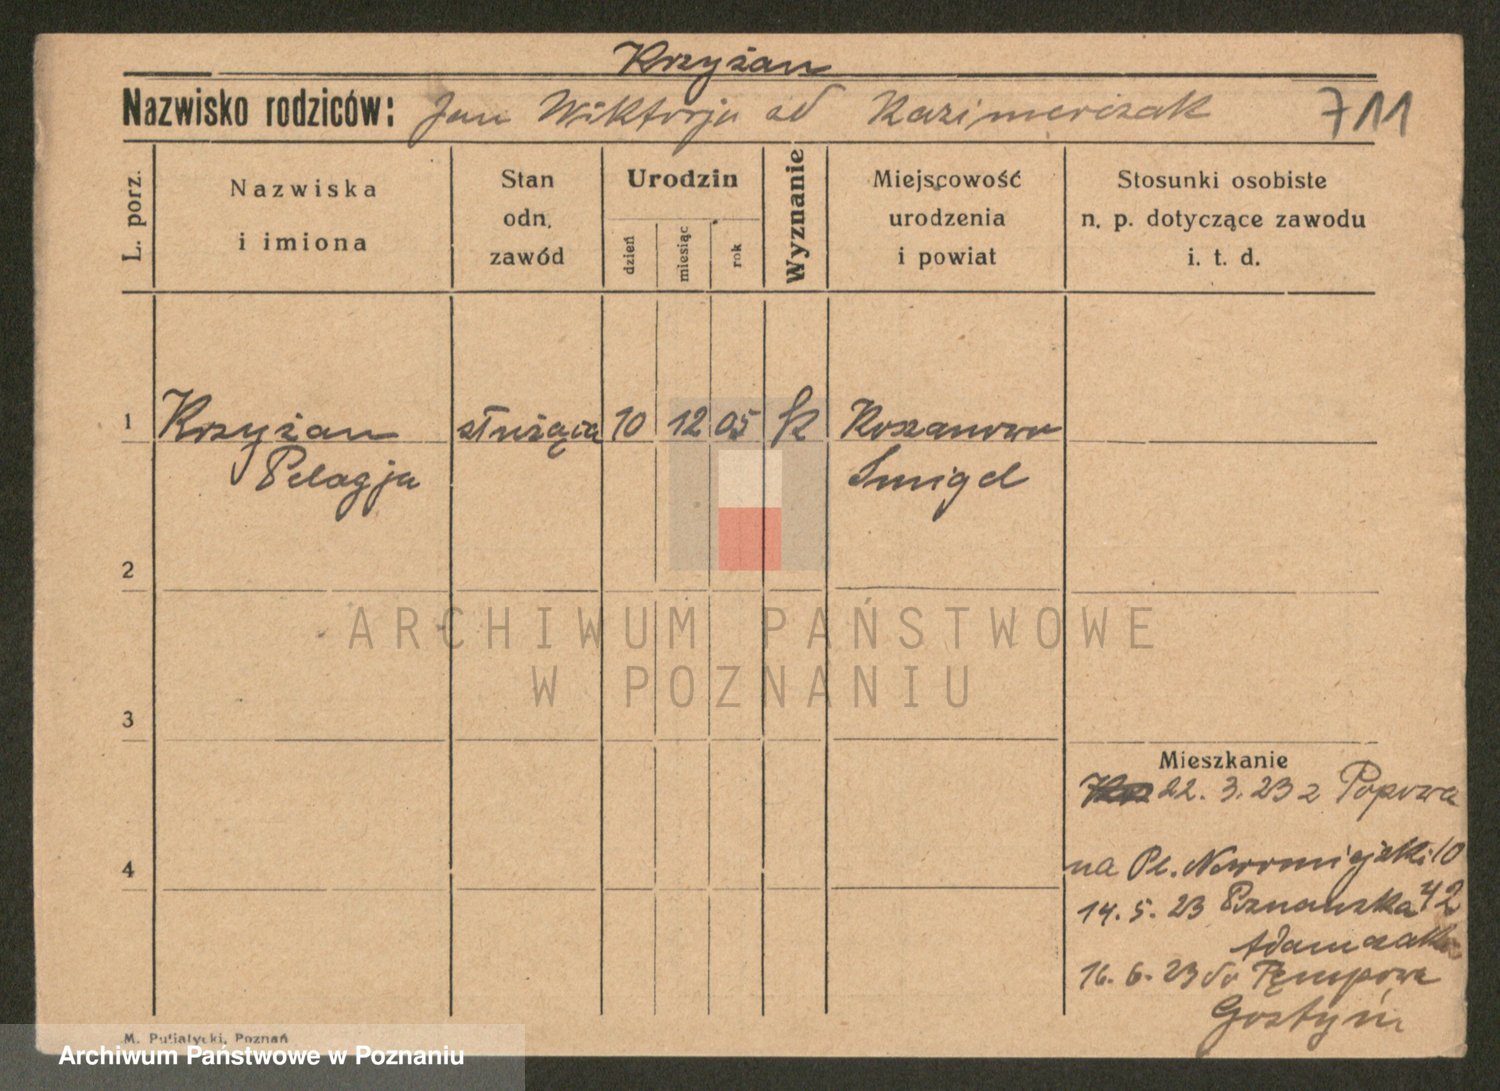 Krzyżan
Nazwisko rodziców: Jan Wiktorja od Kazimierczak 711
L. porz.
Nazwiska
i imiona
Stan
odn.
zawód
Urodzin
dzień
miesiąc
rok
Wyznanie
Miejscowość
urodzenia
i powiat
Stosunki osobiste
n. p. dotyczące zawodu
i. t. d.
1 Krzyżan służąca 10 12 05 k Koszanowo
Pelagja Smigel
2
ARCHIWUM PAŃSTWOWE
W POZNANIU
3
Mieszkanie
22. 3. 23 z Popowa
4
na Pl. Nowomiejski 10
14. 5. 23 Poznańska 42
Adamczak
16. 6. 23 do
Gostyń
M. Putiatycki, Poznań
Archiwum Państwowe w Poznaniu